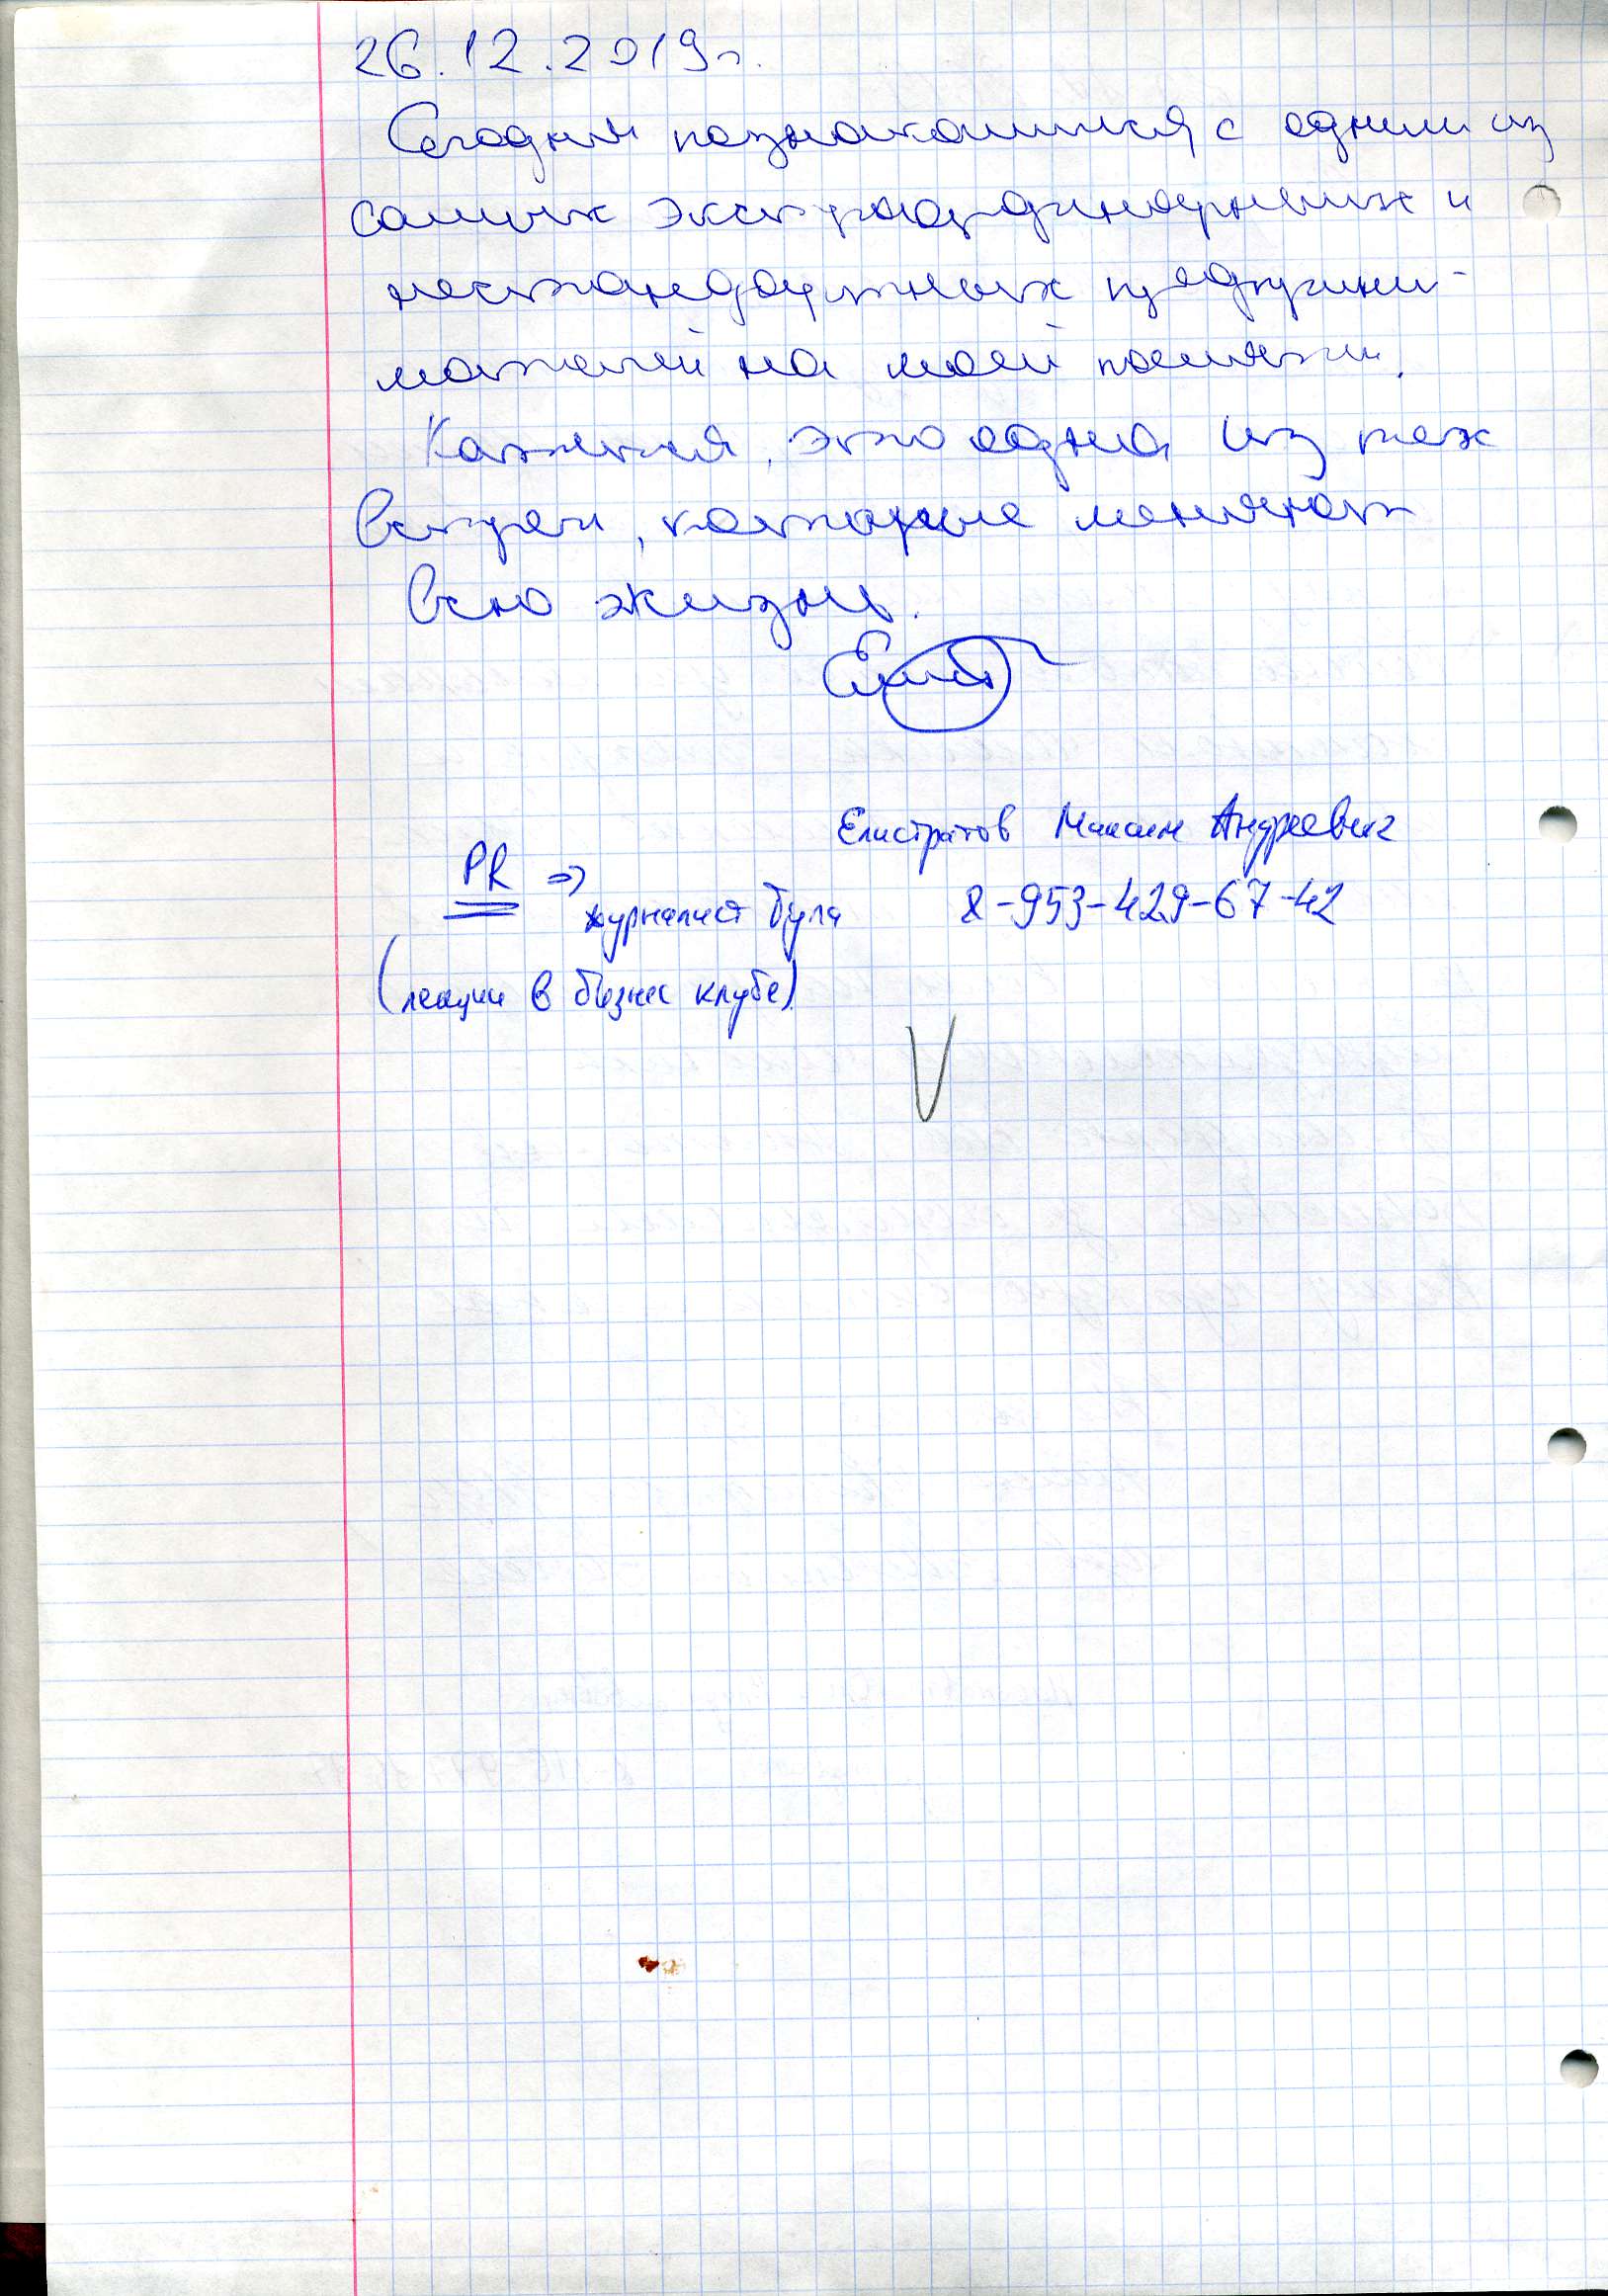 26.12.2019г.
Сегодня познакомился с одним из
самых экстраординарных и
нестандартных предприни-
мателей на моей памяти.
Кажется, это одна из тех
встреч, которые меняют
всю жизнь.
Елистратов Максим Андреевич
PR ⇒
журналист Тула 8-953-429-67-42
(лекции в бизнес клубе)
V